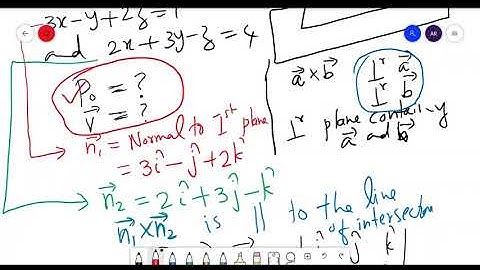 -3x-y+2z=1
and 2x+3y-z=4
P₀ = ?
V⃗ = ?
n⃗₁ = Normal to Iˢᵗ plane
= 3î-ĵ+2k̂
n⃗₂ = 2î+3ĵ-k̂
n⃗₁×n⃗₂ is || to the line
of intersection
î ĵ k̂
a⃗×b⃗ ⊥ʳ a⃗
⊥ʳ b⃗
⊥ʳ plane containing
a⃗ and b⃗
AR